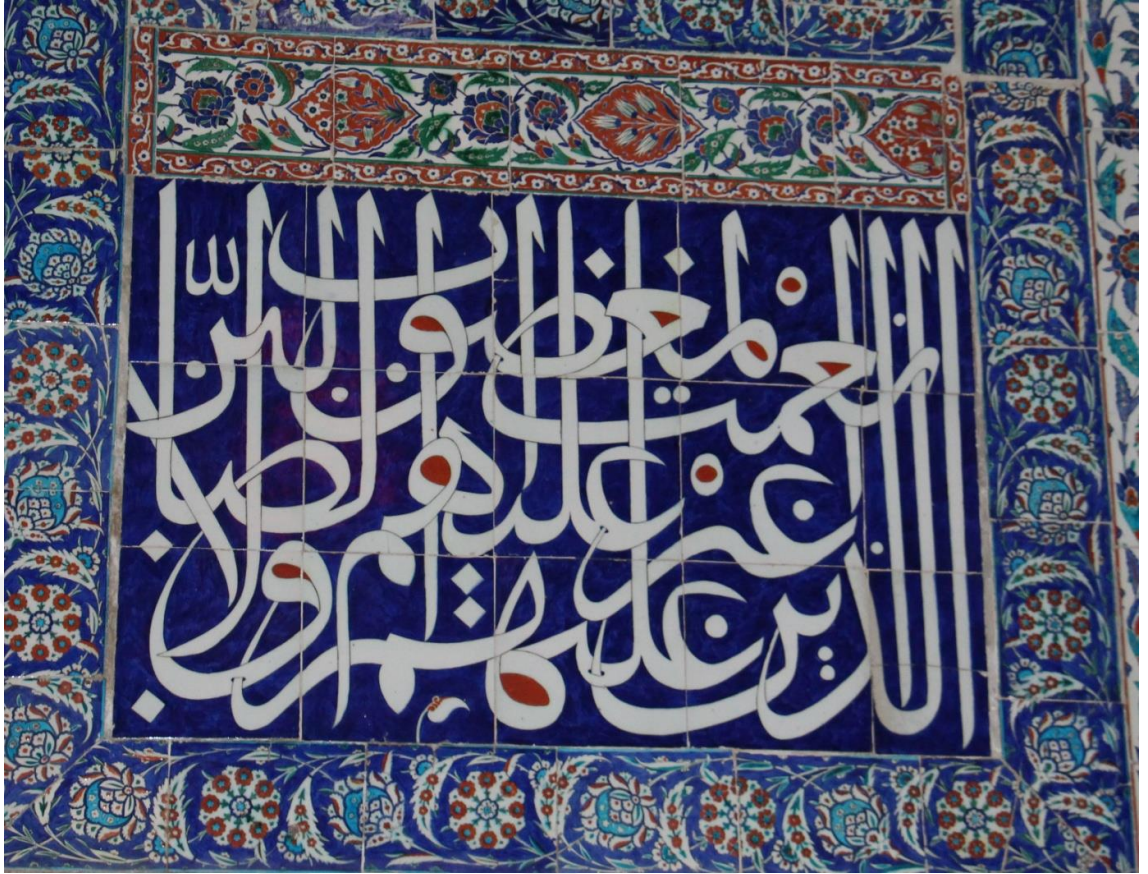 الذين انعمت عليهم غير المغضوب عليهم ولا الضالين